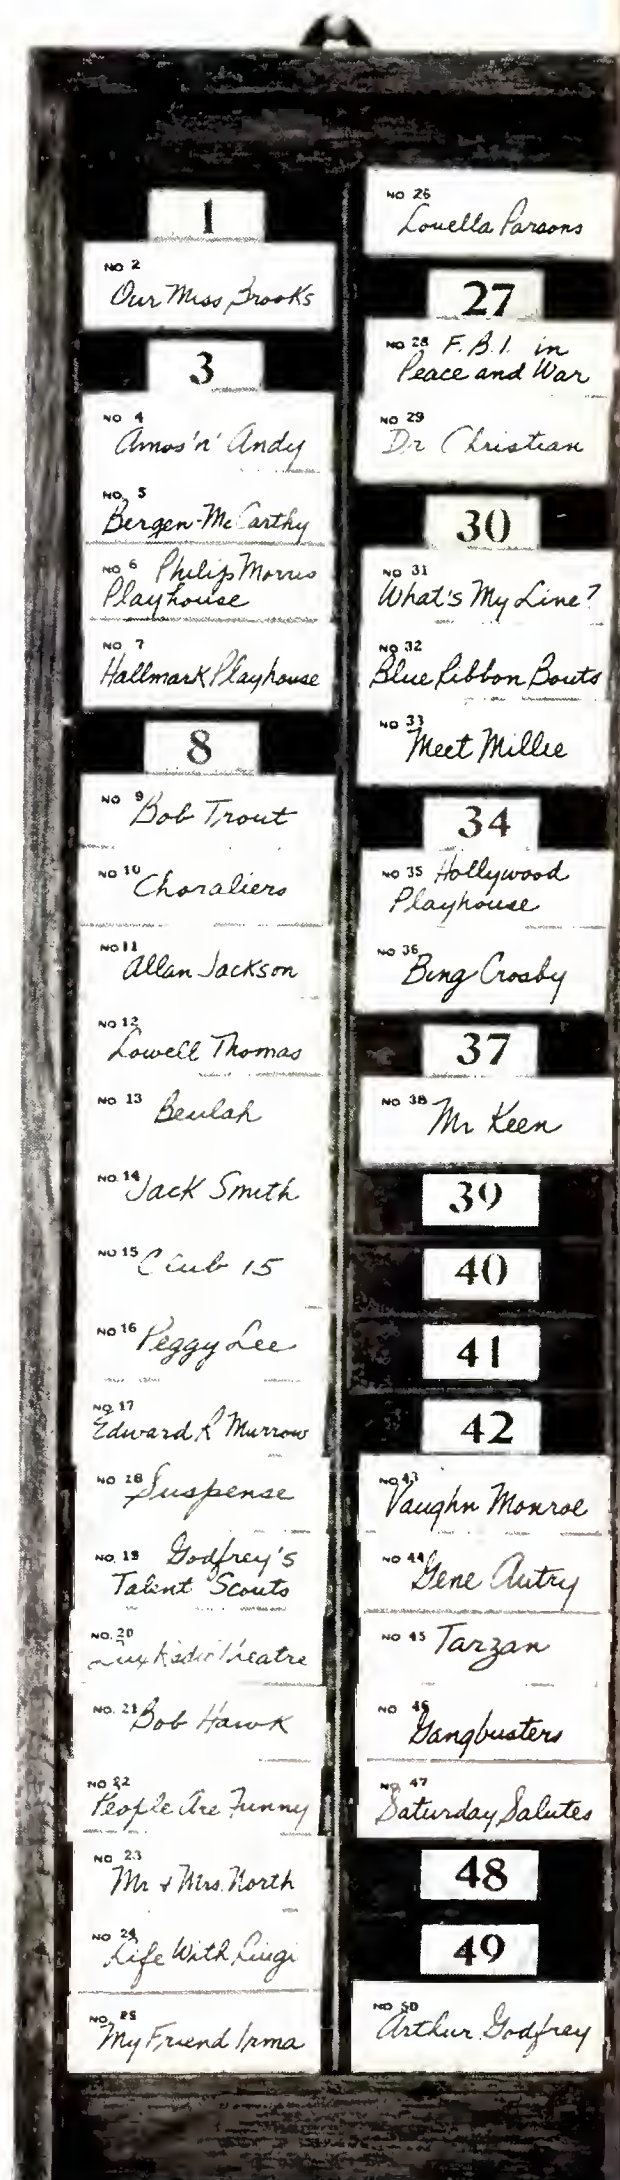 1
NO 2
Our Miss Brooks
3
NO 4
Amos 'n' Andy
NO. 5
Bergen-McCarthy
NO 6 Philip Morris
Playhouse
NO. 7
Hallmark Playhouse
8
NO 9 Bob Trout
NO 10 Choraliers
NO 11
Allan Jackson
NO 12
Lowell Thomas
NO 13 Beulah
NO. 14 Jack Smith
NO 15 Club 15
NO 16 Peggy Lee
NO. 17
Edward R Murrow
NO 18 Suspense
NO. 19 Godfrey's
Talent Scouts
NO. 20
Lux Radio Theatre
NO. 21 Bob Hawk
NO 22
People Are Funny
NO 23
Mr & Mrs. North
NO 24
Life With Luigi
NO. 25
My Friend Irma
NO 26
Louella Parsons
27
NO 28 F.B.I. in
Peace and War
NO 29
Dr Christian
30
NO 31
What's My Line?
NO 32
Blue Ribbon Bouts
NO 33
Meet Millie
34
NO 35 Hollywood
Playhouse
NO 36
Bing Crosby
37
NO 38
Mr Keen
39
40
41
42
NO. 43
Vaughn Monroe
NO 44
Gene Autry
NO 45 Tarzan
NO 46
Gangbusters
NO. 47
Saturday Salutes
48
49
NO 50
Arthur Godfrey